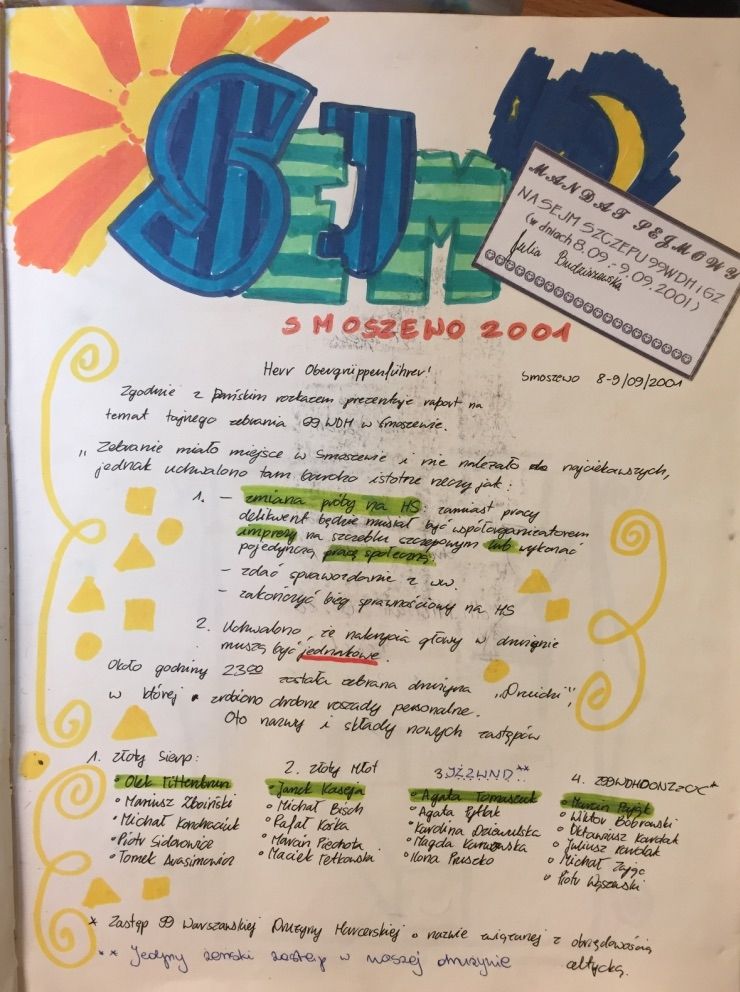 SEJM
MANDAT SEJMOWY
NA SEJM SZCZEPU 99 WDH i GZ
(w dniach 8.09. - 9.09.2001)
Julia Budziszewska
SMOSZEWO 2001
Herr Obergrüppenführer!
Smoszewo 8-9/09/2001
Zgodnie z Pańskim rozkazem prezentuję raport na
temat tajnego zebrania 99 WDH w Smoszewie.
„Zebranie miało miejsce w Smoszewie i nie należało do najciekawszych,
jednak uchwalono tam bardzo istotne rzeczy jak:
1. - zmiana próby na HS: zamiast pracy
delikwent będzie musiał być współorganizatorem
imprezy na szczeblu szczepowym lub wykonać
pojedynczą pracę społeczną
- zdać sprawozdanie z ww.
- zakończyć bieg sprawnościowy na HS
2. Uchwalono, że nakrycia głowy w drużynie
muszą być jednakowe.
Około godziny 23.00 została zebrana drużyna „Druidzi",
w której zrobiono drobne roszady personalne.
Oto nazwy i składy nowych zastępów
1. Złoty Sierp:
Olek Tittenbrun
Mariusz Zboiński
Michał Kondraciuk
Piotr Sidorowicz
Tomek Awasimowicz
2. Złoty Młot
Janek Kaseja
Michał Bisch
Rafał Korka
Marcin Piechota
Maciek Tetkowski
3. JŻZWND**
Agata Tomaszuk
Agata Pytlak
Karolina Dziewulska
Magda
Ilona Pruszko
4. Z99WDHOONZZOC*
Marcin Pająk
Wiktor Bobrowski
Oktawiusz Kardak
Juliusz Kardak
Michał Zając
Piotr Wąszewski
* Zastęp 99 Warszawskiej Drużyny Harcerskiej o nazwie związanej z obrzędowością
celtycką.
** Jedyny żeński zastęp w naszej drużynie